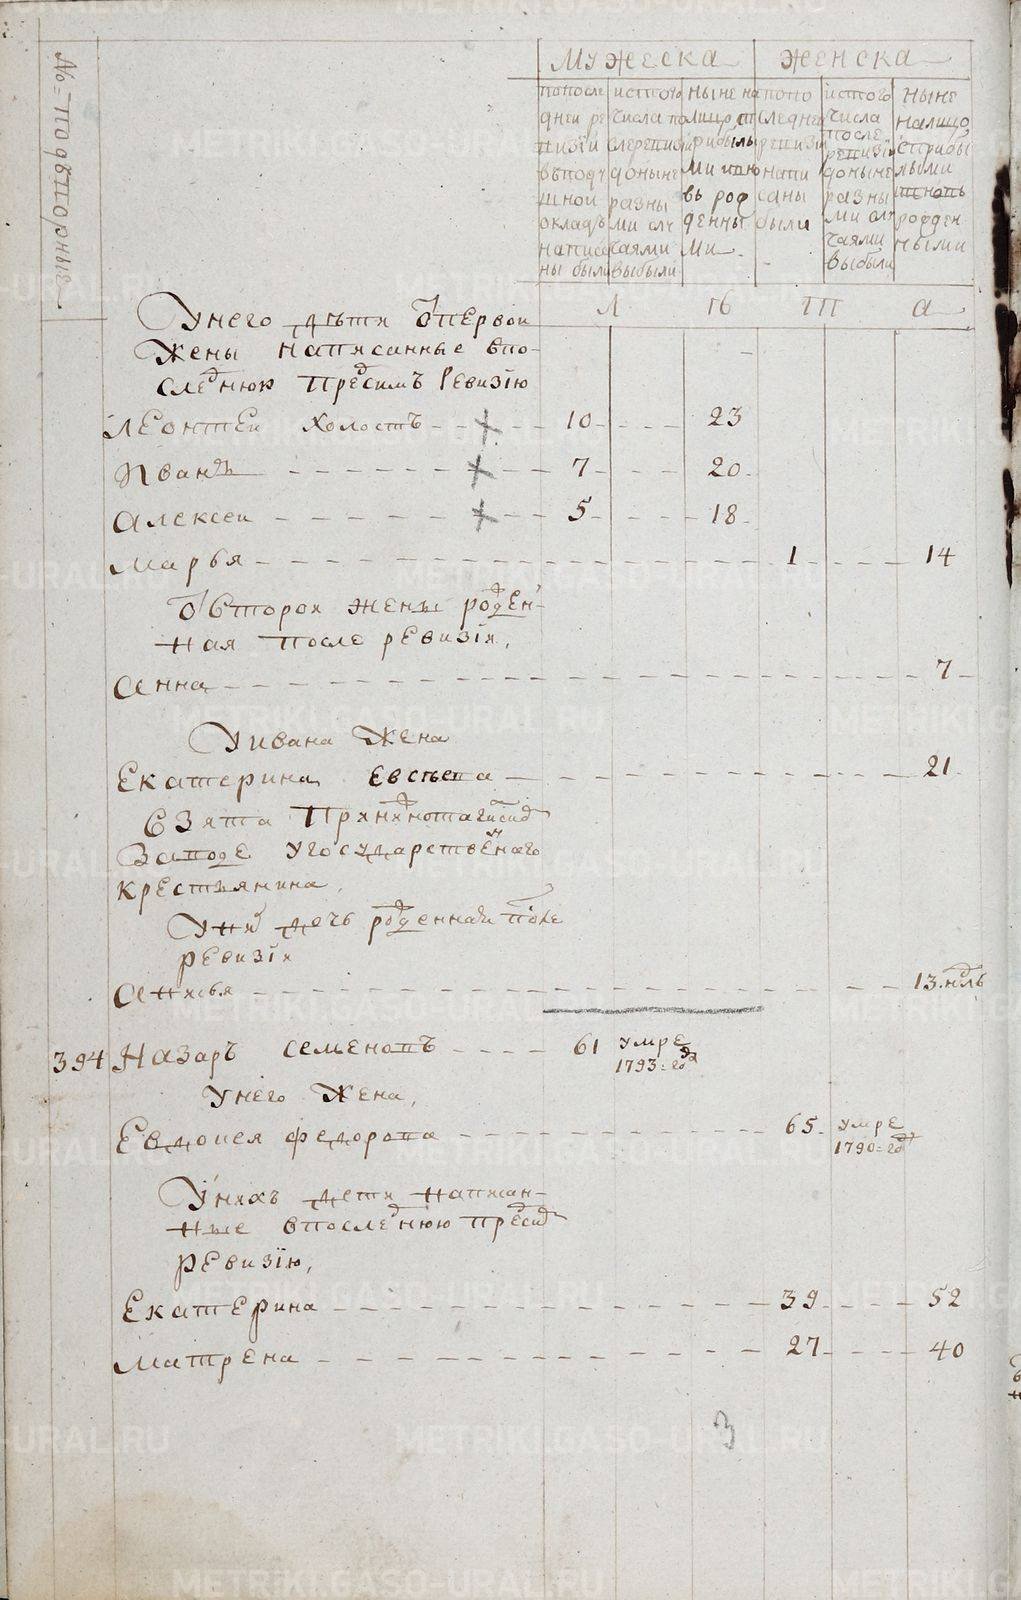 № = подворные
Мужеска
Женска
по после
дней ре
визіи
в поду
шной
окладъ
написа
ны были
ис того
числа по
сле ревизіи
до ныне
разны
ми слу
чаями
выбыли
ныне на
лицо с п
рибылы
ми и вно
вь рож
денны
ми
по по
следней
ревизіи
напи
саны
были
ис того
числа
после
ревизіи
до ныне
разны
ми слу
чаями
выбыли
ныне
на лицо
с прибы
лыми
и вновь
рожден
ными
Л ѣ т а
У него дѣти от первои
жены написанные в по-
следнюю пред симъ ревизію
Леонтеи холостъ 10 23
Иванъ 7 20
Алексеи 5 18
Марья 1 14
от второи жены рожден-
ная после ревизіи,
Анна 7
У ивана жена
Екатерина Евсѣева 21
взята
заводе у государственнаго
крестьянина,
У них дочь рожденная после
ревизіи
Анисья 13. ндль
394 Назаръ семеновъ 61 умре
1793 = год
У него жена,
Евдокея федорова 65 умре
1790 = год
У нихъ дети написан-
ные в последнюю пред сим
ревизію,
Екатерина 39 52
Матрена 27 40
3
METRIKI.GASO-URAL.RU